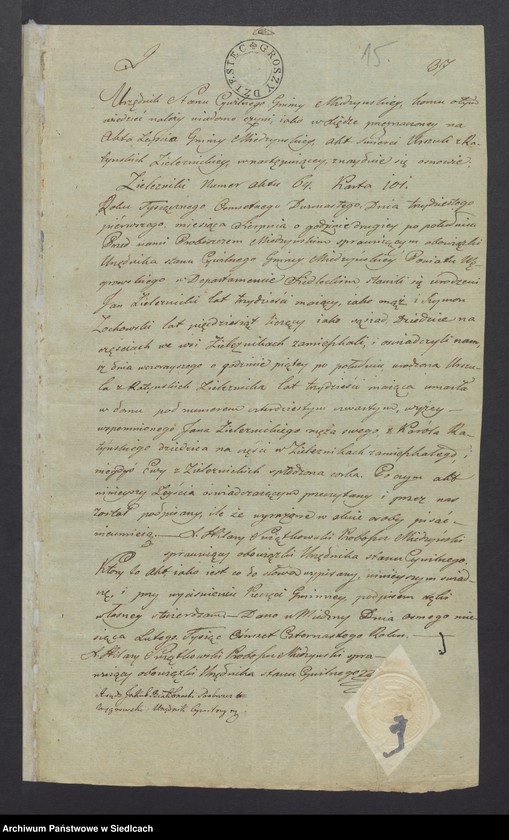 DZIESIEC GROSZY
15.
37
Urzędnik Stanu Cywilnego Gminy Miedzyńskiey, komu o tym
wiedzieć należy wiadomo czyni iako w Xiędze przeznaczoney na
Akta Zeyścia Gminy Miedzyńskiey, akt śmierci Urszuli z Ka-
tyńskich Zielenickiey, w następuiącey, znayduie się osnowie.
Numer aktu 64. Karta 101.
Roku Tysiącznego Osmsetnego Dwunastego, Dnia trzydziestego
pierwszego, miesiąca Sierpnia o godzinie drugiey po południu
Przed nami Proboszczem Miedzyńskim sprawuiącym obowiązki
Urzędnika Stanu Cywilnego Gminy Miedzyńskiey Powiatu Wę-
growskiego w Departamencie Siedleckim, stawili się urodzeni
Jan lat trzydzieści maiący, iako mąż i Szymon
Zochowski lat pięćdziesiąt liczący iako sąsiad, Dziedzice na
częściach we wsi zamieszkali, i oświadczyli nam,
iż dnia wczorayszego o godzinie piątey po południu urodzona Urszu-
la z lat trzydzieści maiąca umarła
w domu pod numerem czterdziestym czwartym, wyżey
wspomnionego Jana męża swego, z Karola Ka-
tyńskiego dziedzica na części w zamieszkałego, i
niegdyś Ewy z spłodzona córka. Poczym akt
ninieyszy Zeyścia oświadczaiącym przeczytany i przez nas
został podpisany, ile że wyrażone w akcie osoby pisać
nieumieią. X. Hilary Proboszcz Miedzyński
sprawuiący obowiązki Urzędnika Stanu Cywilnego.
Który to Akt iako iest co do słowa wypisany, ninieyszym świad-
czę, i przy wyciśnieniu Pieczęci Gminney, podpisem ręki
własney stwierdzam. Dano w Dnia osmego mie-
siąca Lutego, Tysiąc Osmset Czternastego Roku.
X. Hilary Proboszcz Miedzyński spra-
wuiący obowiązki Urzędnika Stanu Cywilnego
Archiwum Państwowe w Siedlcach